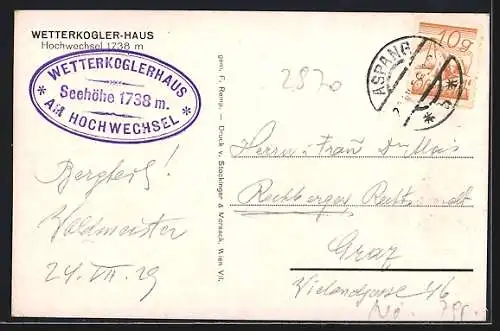 WETTERKOGLER-HAUS
Hochwechsel 1738 m
WETTERKOGLERHAUS
Seehöhe 1738 m.
* AM HOCHWECHSEL *
Bergheil!
Waldmeister
24. VII. 29
gem. F. Remp. — Druck v. Stockinger & Morsack, Wien VII.
2870
ASPANG
10g
Herrn u. Frau Dr.
Rechberger,
Graz
Wielandgasse 46